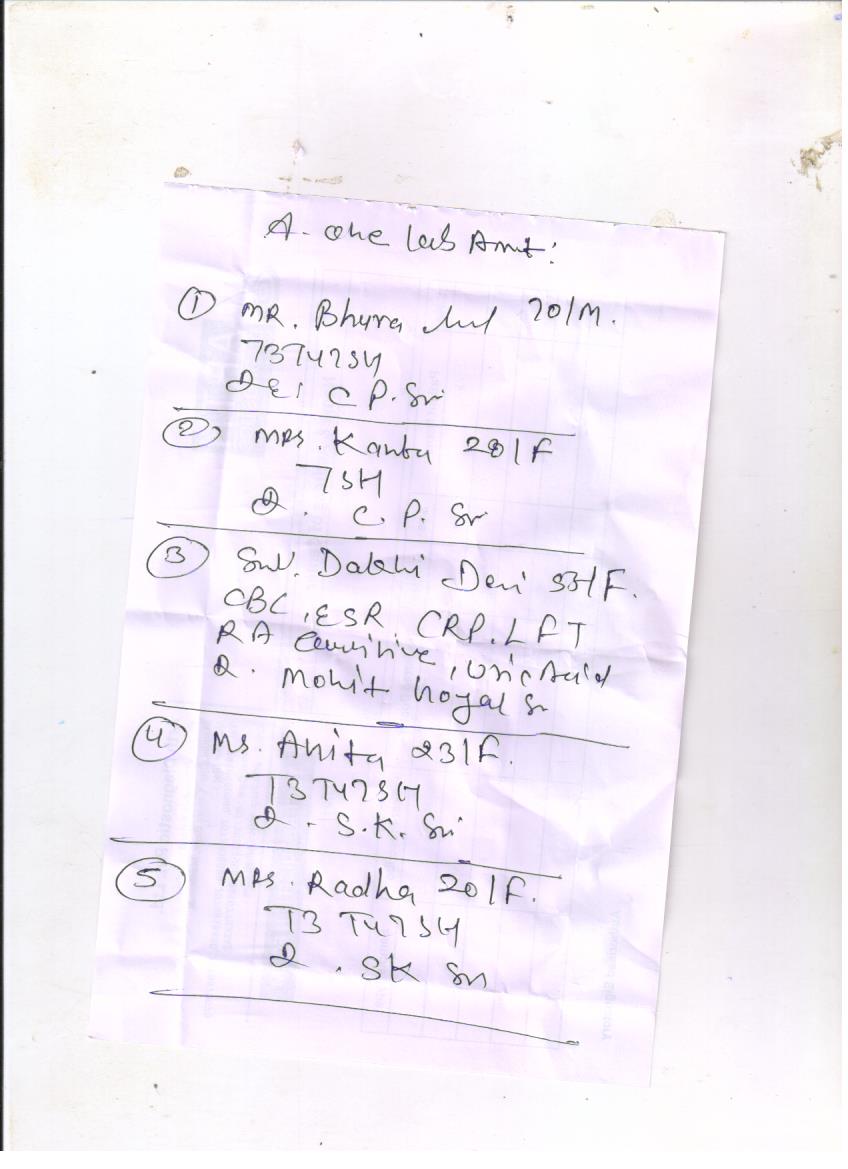 A-one lab Amt:
① MR. Bhura 70/M.
T3T4TSH
C P. Sir
② MRS. Kanta 28/F
TSH
D. C. P. Sir
③ Smt. Dakhi Devi 53/F.
CBC, ESR, CRP, LFT
RA , Uric Acid
D. Mohit Goyal Sir
④ Ms. Anita 23/F.
T3T4TSH
D. S.K. Sir
⑤ MRS. Radha 20/F.
T3 T4TSH
D. SK Sir